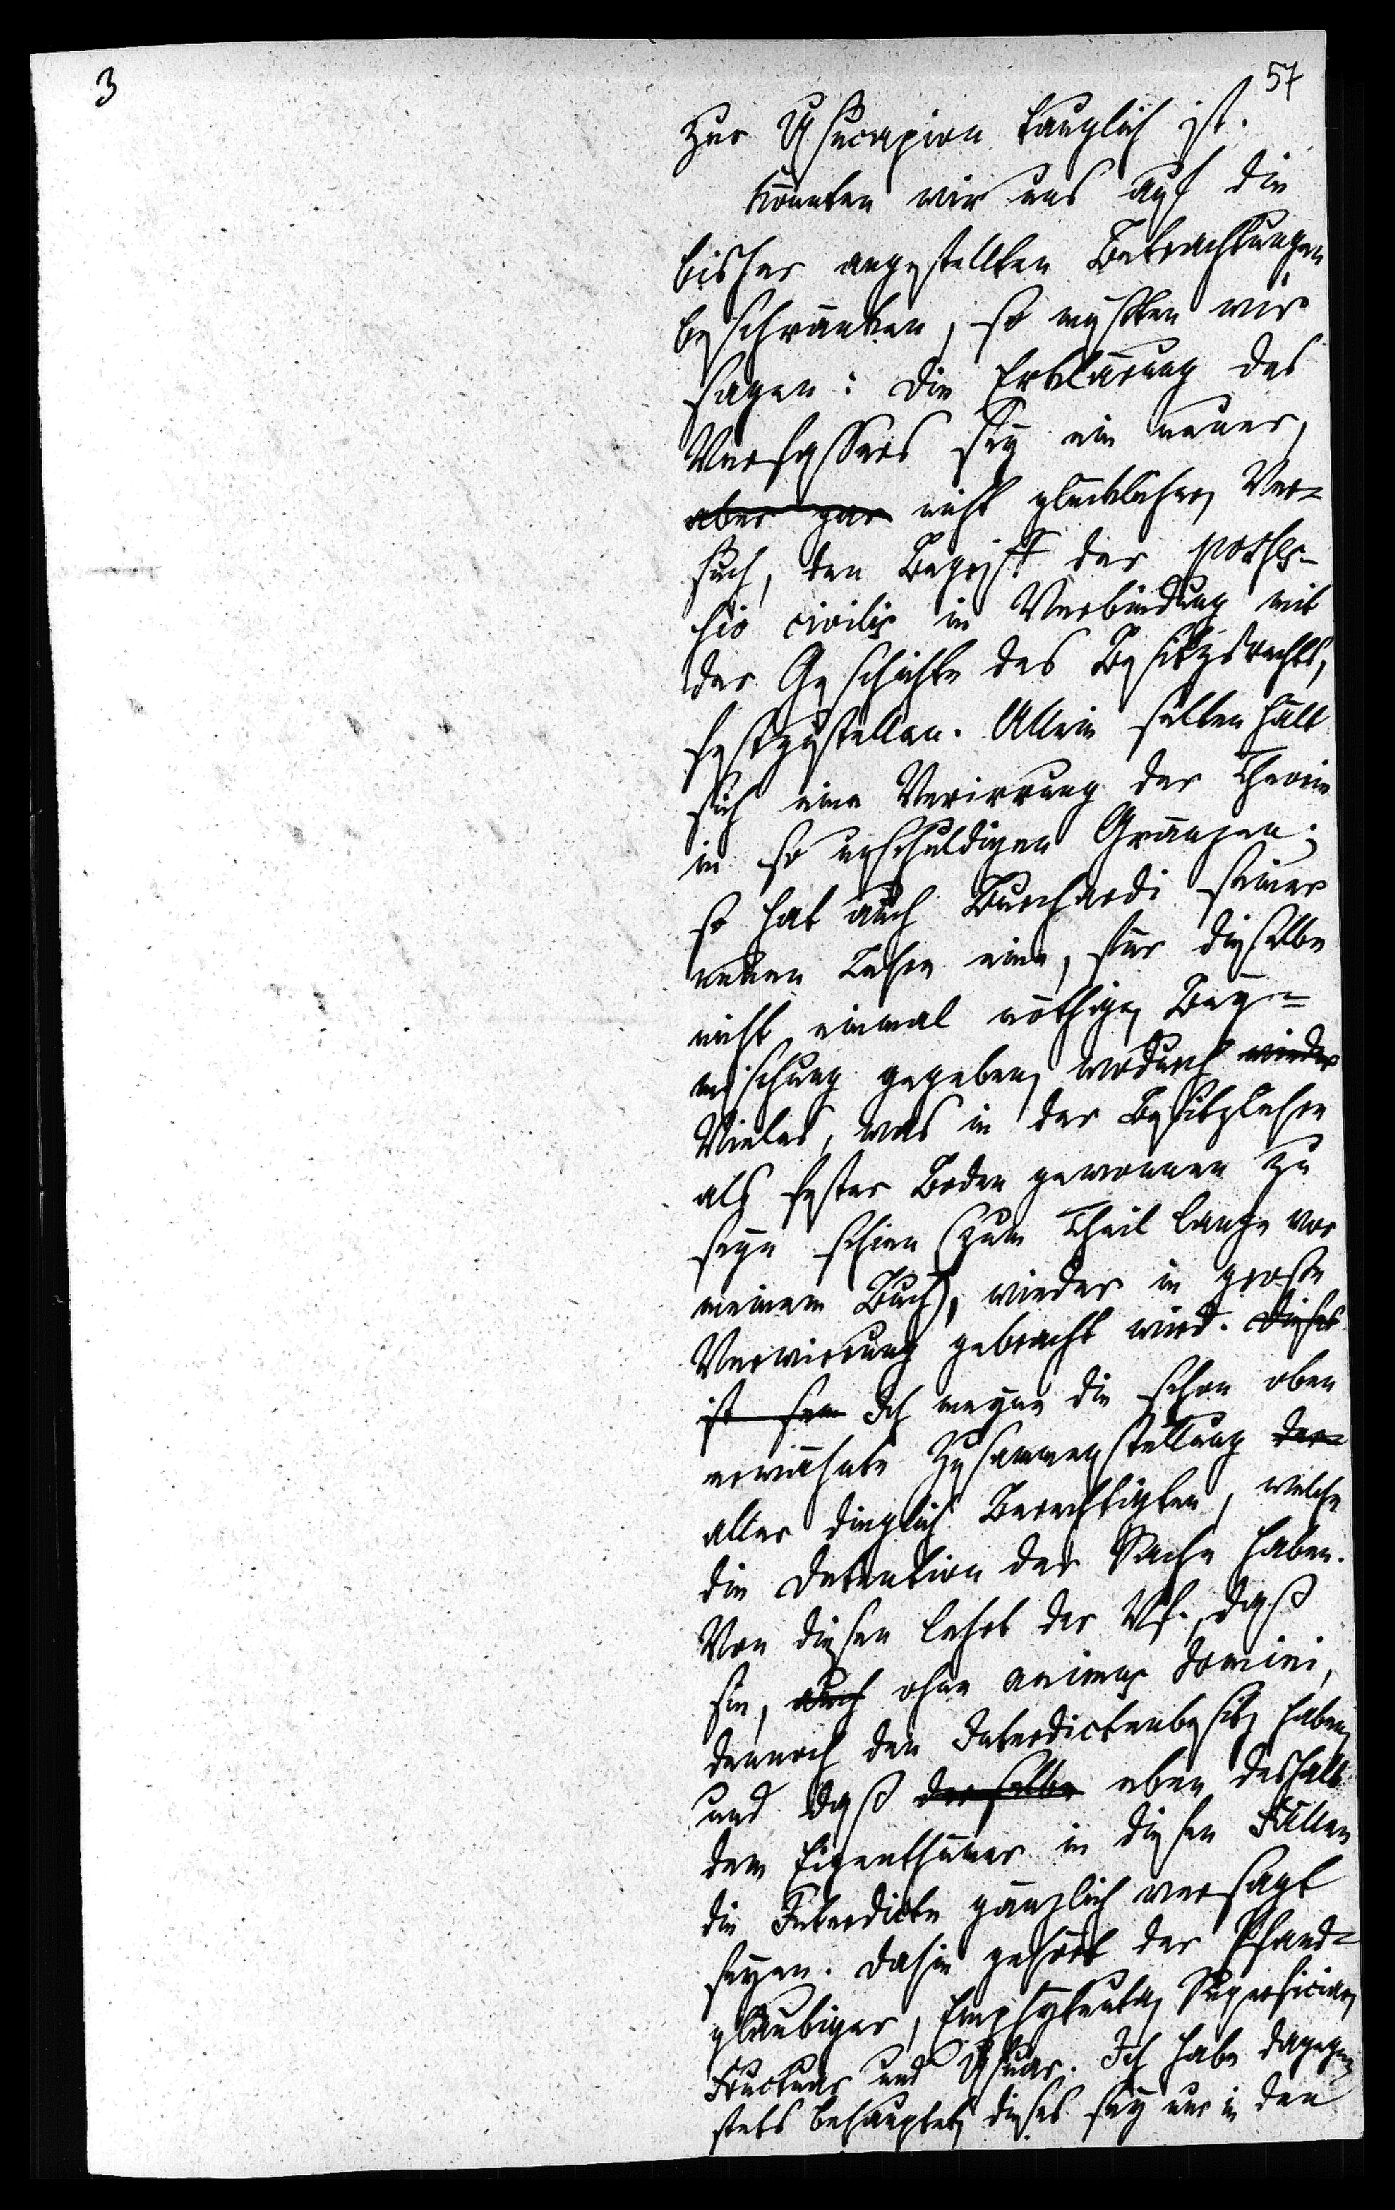 3
57
zur Usucapion tauglich ist.
Könnten wir uns auf die
bisher angestellten Betrachtungen
beschränken, so müßten wir
sagen: die Erklärung des
Verfassers sey ein neuer,
aber gar nicht glücklicher, Ver-
such, den Begriff der posses-
sio civilis in Verbindung mit
der Geschichte des Besitzrechts,
festzustellen. Allein selten hält
sich eine Verirrung der Theorie
in so unschuldigen Gränzen;
so hat auch Burchardi seiner
neuen Lehre eine, für dieselbe
nicht einmal nöthige, Bey-
mischung gegeben, wodurch wieder
Vieles, was in der Besitzlehre
als fester Boden gewonnen zu
seyn schien (zum Theil lange vor
meinem Buch), wieder in große
Verwirrung gebracht wird. Dieses
ist Ich meyne die schon oben
erwähnte Zusammenstellung der
aller dinglich Berechtigten, welche
die Detention der Sache haben.
Von diesen lehrt der Vf., daß
sie, auch ohne animus domini,
dennoch den Interdictenbesitz haben,
und daß derselbe eben deshalb
dem Eigenthümer in diesen Fällen
die Interdicte gänzlich versagt
seyen. Dahin gehört der Pfand-
gläubiger, Emphyteuta, Superficiar,
Fructuar und Usuar. Ich habe dagegen
stets behauptet, dieses sey nur in den